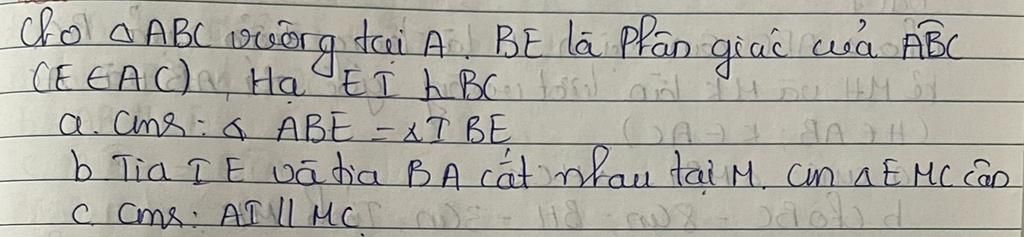 Cho △ABC vuông tại A. BE là Phân giác của ABC
(E ∈ AC), Hạ EI ⊥ BC
a. Cmr: △ ABE = △IBE
b Tia IE và tia BA cắt nhau tại M. Cm △EMC cân
c. Cmr: AI // MC